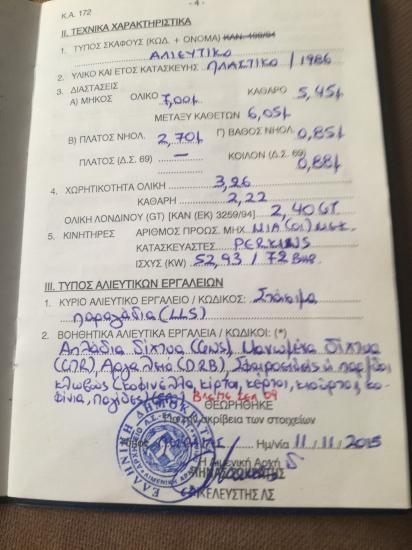 Κ.Α. 172
- 4 -
ΙΙ. ΤΕΧΝΙΚΑ ΧΑΡΑΚΤΗΡΙΣΤΙΚΑ
1. ΤΥΠΟΣ ΣΚΑΦΟΥΣ (ΚΩΔ. + ΟΝΟΜΑ) ΚΑΝ. 109/94
ΑΛΙΕΥΤΙΚΟ
2. ΥΛΙΚΟ ΚΑΙ ΕΤΟΣ ΚΑΤΑΣΚΕΥΗΣ ΠΛΑΣΤΙΚΟ / 1986
3. ΔΙΑΣΤΑΣΕΙΣ
Α) ΜΗΚΟΣ ΟΛΙΚΟ 7,00μ ΚΑΘΑΡΟ 5,45μ
ΜΕΤΑΞΥ ΚΑΘΕΤΩΝ 6,05μ
Β) ΠΛΑΤΟΣ ΝΗΟΛ. 2,70μ Γ) ΒΑΘΟΣ ΝΗΟΛ. 0,85μ
ΠΛΑΤΟΣ (Δ.Σ. 69) — ΚΟΙΛΟΝ (Δ.Σ. 69) 0,88μ
4. ΧΩΡΗΤΙΚΟΤΗΤΑ ΟΛΙΚΗ 3,26
ΚΑΘΑΡΗ 2,22
ΟΛΙΚΗ ΛΟΝΔΙΝΟΥ (GT) [ΚΑΝ (ΕΚ) 3259/94] 2,40 GT
5. ΚΙΝΗΤΗΡΕΣ ΑΡΙΘΜΟΣ ΠΡΟΩΣ. ΜΗΧ. ΜΙΑ (01) ΜΕΚ
ΚΑΤΑΣΚΕΥΑΣΤΕΣ PERKINS
ΙΣΧΥΣ (KW) 52,93 / 72 BHP
ΙΙΙ. ΤΥΠΟΣ ΑΛΙΕΥΤΙΚΩΝ ΕΡΓΑΛΕΙΩΝ
1. ΚΥΡΙΟ ΑΛΙΕΥΤΙΚΟ ΕΡΓΑΛΕΙΟ / ΚΩΔΙΚΟΣ: Στάσιμα
παραγάδια (LLS)
2. ΒΟΗΘΗΤΙΚΑ ΑΛΙΕΥΤΙΚΑ ΕΡΓΑΛΕΙΑ / ΚΩΔΙΚΟΙ: (*)
Απλάδια δίχτυα (GNS), Μανωμένα δίχτυα
(GTR), Αργαλειά (DRB),
κιούρτοι, κο-
φίνια, παγίδες Βλέπε σελ 09
ΘΕΩΡΗΘΗΚΕ
ακρίβεια των στοιχείων
Ημ/νία 11/11/2015
Η Λιμενική Αρχή
ΕΠΙΚΕΛΕΥΣΤΗΣ ΛΣ